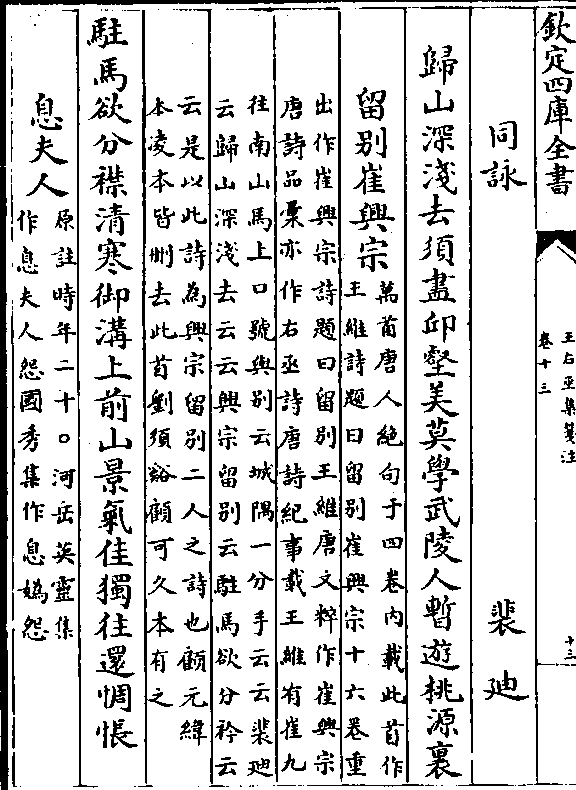 欽定四庫全書
王右丞集箋注
卷十三
十三
同詠
裴廸
歸山深淺去須盡邱壑美莫學武陵人暫遊桃源裏
留别崔興宗
萬首唐人絶句于四卷内載此首作
王維詩題曰留别崔興宗十六卷重
出作崔興宗詩題曰留别王維唐文粹作崔興宗
唐詩品彙亦作右丞詩唐詩紀事載王維有崔九
往南山馬上口號與别云城隅一分手云云裴廸
云歸山深淺去云云興宗留别云駐馬欲分衿云
云是以此詩為興宗留别二人之詩也顧元緯
本凌本皆刪去此首劉須谿顧可久本有之
駐馬欲分襟清寒御溝上前山景氣佳獨往還惆悵
息夫人
原註時年二十○河岳英靈集
作息夫人怨國秀集作息嬀怨